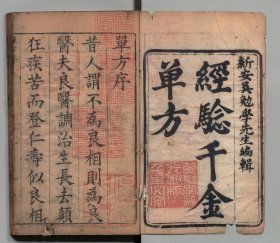 新安吳勉學先生編輯
經驗千金
單方
單方序
昔人謂不為良相則為良
醫夫良醫調治生長去顛
狂疾苦而登仁壽似良相